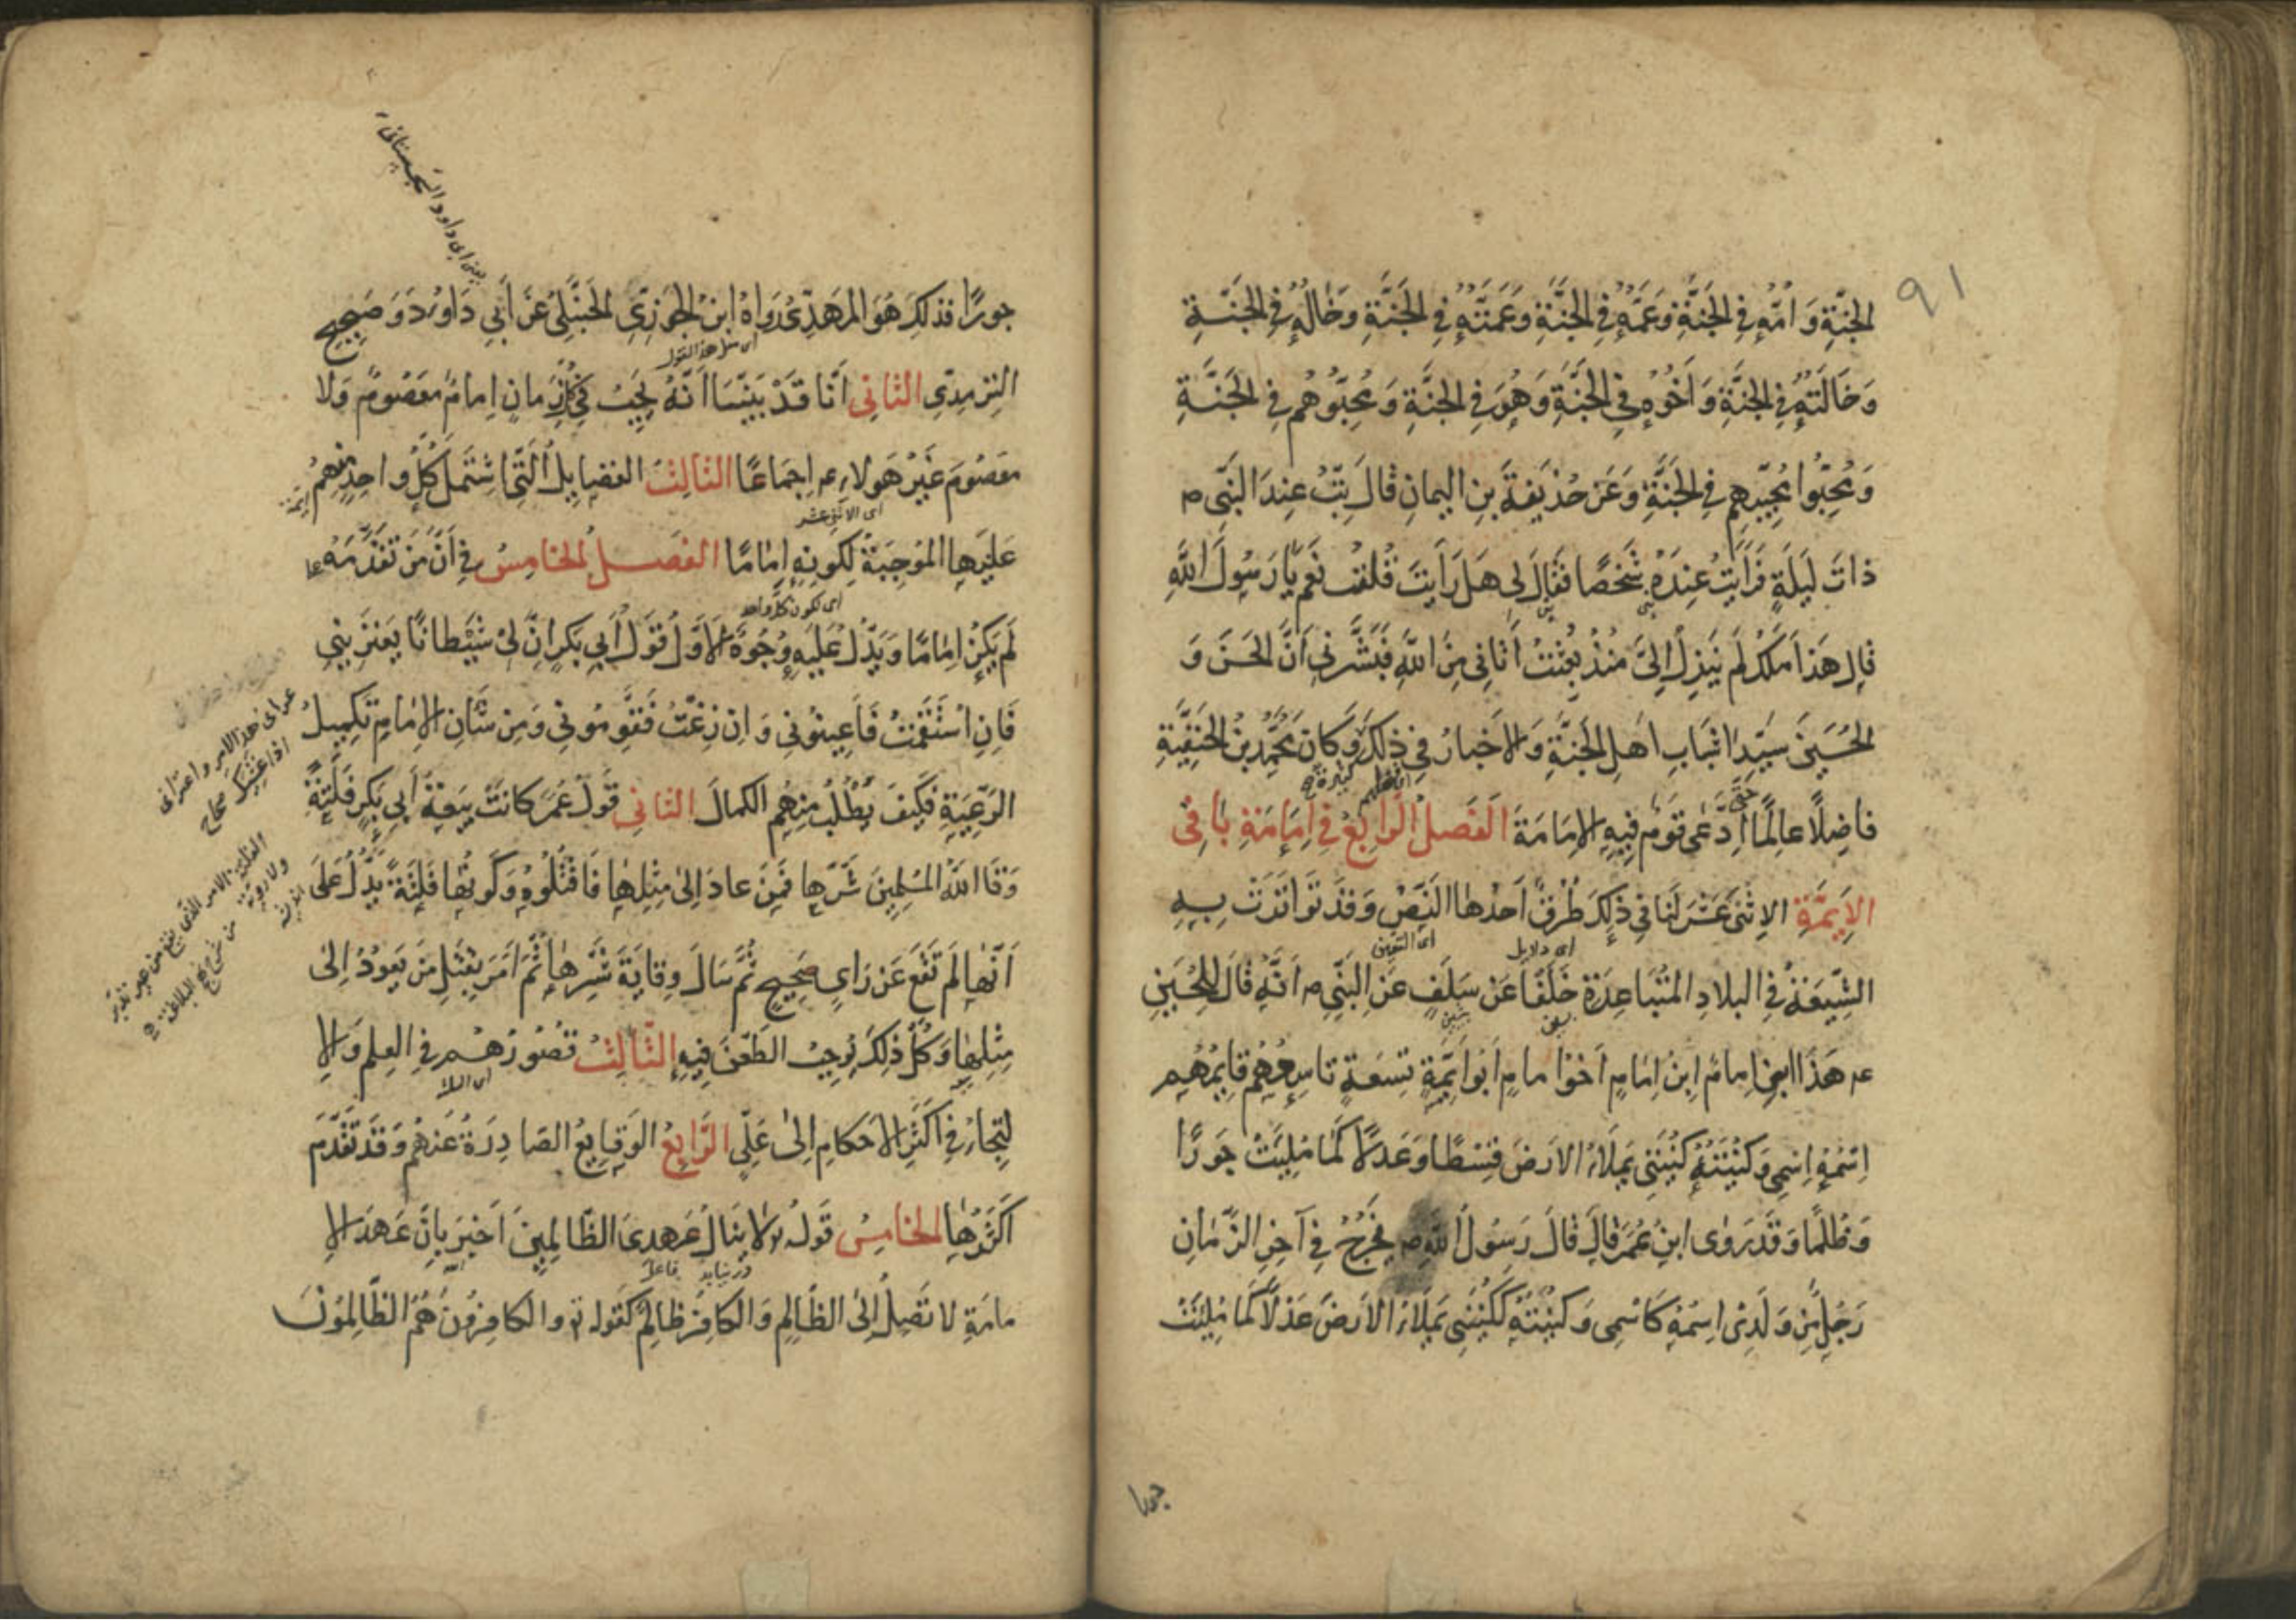 ٩١
الجنة وامه في الجنة وعمه في الجنة وعمته في الجنة وخاله في الجنة
وخالته في الجنة واخوه في الجنة وهو في الجنة ومحبوهم في الجنة
ومحبوا محبيهم في الجنة وعن حذيفة بن اليمان قال بت عند النبي ص
ذات ليلة فرايت عنده شخصا فقال لي هل رايت قلت نعم يا رسول الله
قال هذا ملك لم ينزل الي منذ بعثت اتاني من الله فبشرني ان الحسن و
الحسين سيدا شباب اهل الجنة والاخبار في ذلك وكان محمد بن الحنفية
كثيرة
فاضلا عالما حتى ادعى قوم فيه الامامة الفصل الرابع في امامة باقي
الايمة الاثنى عشر لنا في ذلك طرق احدها النص وقد تواترت به
اى دلايل
اى التعيين
الشيعة في البلاد المتباعدة خلفا عن سلف عن النبي ص انه قال للحسين
عم هذا ابني امام ابن امام اخو امام ابو ايمة تسعة تاسعهم قايمهم
اسمه اسمي وكنيته كنيتي يملاء الارض قسطا وعدلا كما مليت جورا
وظلما وقد روى ابن عمر قال قال رسول الله ص يخرج في آخر الزمان
رجل من ولدي اسمه كاسمي وكنيته ككنيتي يملاء الارض عدلا كما مليت
جورا
يعني ابي داود السجستاني
جورا فذلك هو المهدي رواه ابن الجوزي الحنبلي عن ابي داود وصحيح
اى مثل هذا القول
الترمدي الثاني انا قد بينا انه يجب في كل زمان امام معصوم ولا
معصوم غير هولاء عم اجماعا الثالث الفضايل التي اشتمل كل واحد منهم
اى الاثني عشر
عليها الموجبة لكونه اماما الفصل الخامس في ان من تقدمه
اى لكون كل واحد
لم يكن اماما ويدل عليه وجوه الاول قول ابي بكر ان لي شيطانا يعتريني
فان استقمت فاعينوني وان زغت فقوموني ومن شان الامام تكميل
عراني هذا الامر واعتراني
اذا غشيك صحاح
الرعية فكيف يطلب منهم الكمال الثاني قول عمر كانت بيعة ابي بكر فلتة
وقا الله المسلمين شرها فمن عاد الى مثلها فاقتلوه وكونها فلتة يدل على
الفلتة الامر الذي يقع من غير تدبر
ولا روية
انها لم تقع عن راي صحيح ثم سال وقاية شرها ثم امر بقتل من يعود الى
مثلها وكل ذلك يوجب الطعن فيه الثالث قصورهم في العلم والا
لتجاء في اكثر الاحكام الى علي الرابع الوقايع الصادرة عنهم وقد تقدم
اكثرها الخامس قوله تع لا ينال عهدي الظالمين اخبر بان عهد الا
فاعل
مامة لا تصل الى الظالم والكافر ظالم كقوله تع والكافرون هم الظالمون